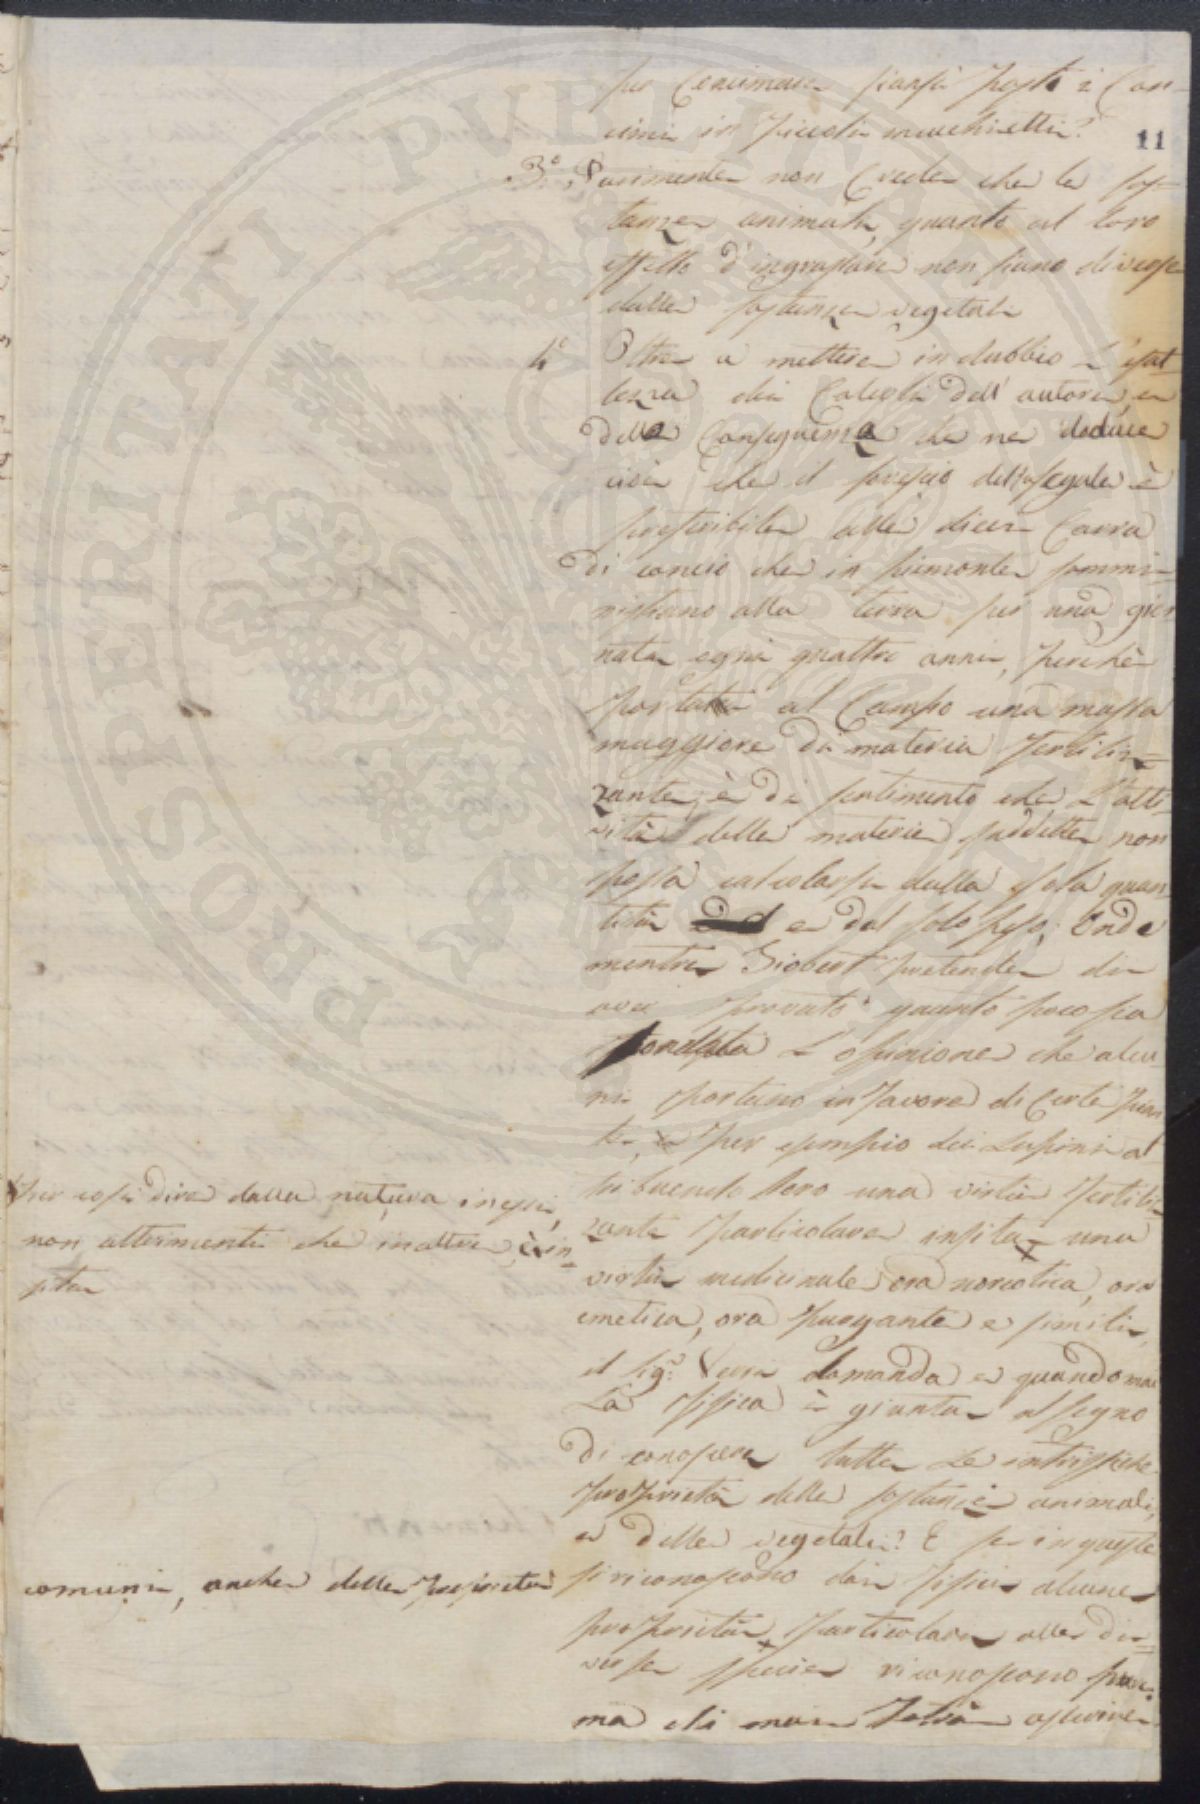 per Concimare siansi posti i Con-
cimi in piccoli mucchietti?
11
3.° Parimente non Crede che le sos-
tanze animali, quanto al loro
effetto d'ingrassare non siano diverse
dalle sostanze vegetali
4° Oltre a mettere in dubbio l'esat
tezza dei Calcoli dell'autore, e
della Conseguenza che ne deduce
cioè che il sovescio della segale è
preferibile alle dieci Carra
di concio che in piemonte sommi-
nistrano alla terra per una gior
nata ogni quattro anni, perchè
portata al Campo una massa
maggiore di materia fertiliz-
zante, è di sentimento che l'atti
vità delle materie suddette non
possa calcolarsi dalla sola quan
tità e dal solo peso; Onde
mentre Giobert pretende di
aver provato quanto poco sia
fondata l'opinione che alcu
ni portano in favore di Certe pian
te, per esempio dei Lupini at
tribuendo loro una virtù fertiliz
zante particolare insita una
per così dire dalla natura in essi,
non altrimenti che in altre è in-
sita
virtù medicinale ora narcotica, ora
emetica, ora purgante e simili,
il Sig.r domanda e quando mai
La fisica è giunta al segno
di conoscere tutte le intrinseche
proprietà delle sostanze animali,
e delle vegetali? E se in queste
si riconoscono dai fisici alcune
comuni, anche delle proprietà
proprietà particolari alle di-
verse specie riconoscono
ma chi mai potrà ascrivere
PROSPERITATI PUBLICAE